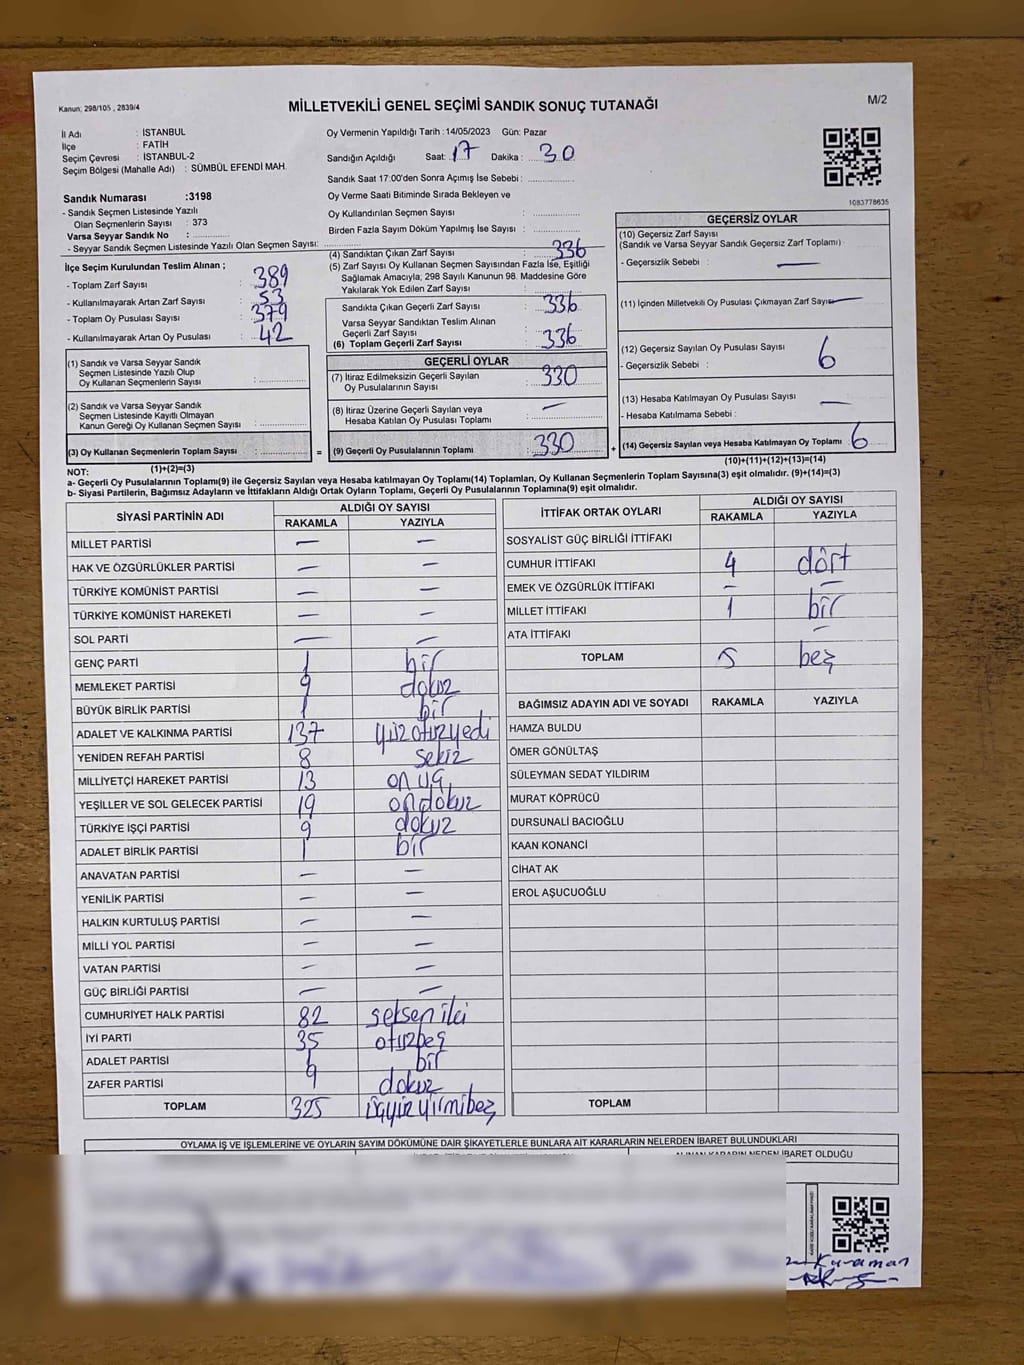 Kanun: 298/105 , 2839/4
MİLLETVEKİLİ GENEL SEÇİMİ SANDIK SONUÇ TUTANAĞI
M/2
İl Adı : İSTANBUL
İlçe : FATİH
Seçim Çevresi : İSTANBUL-2
Seçim Bölgesi (Mahalle Adı) : SÜMBÜL EFENDİ MAH.
Oy Vermenin Yapıldığı Tarih : 14/05/2023 Gün: Pazar
Sandığın Açıldığı Saat: 17 Dakika : 30
Sandık Saat 17:00'den Sonra Açımış İse Sebebi :
Oy Verme Saati Bitiminde Sırada Bekleyen ve
Oy Kullandırılan Seçmen Sayısı :
Birden Fazla Sayım Döküm Yapılmış İse Sayısı :
1083778635
Sandık Numarası :3198
- Sandık Seçmen Listesinde Yazılı
Olan Seçmenlerin Sayısı : 373
Varsa Seyyar Sandık No :
- Seyyar Sandık Seçmen Listesinde Yazılı Olan Seçmen Sayısı:
İlçe Seçim Kurulundan Teslim Alınan ;
- Toplam Zarf Sayısı : 389
- Kullanılmayarak Artan Zarf Sayısı : 53
- Toplam Oy Pusulası Sayısı : 379
- Kullanılmayarak Artan Oy Pusulası : 42
(1) Sandık ve Varsa Seyyar Sandık
Seçmen Listesinde Yazılı Olup
Oy Kullanan Seçmenlerin Sayısı :
(2) Sandık ve Varsa Seyyar Sandık
Seçmen Listesinde Kayıtlı Olmayan
Kanun Gereği Oy Kullanan Seçmen Sayısı :
(3) Oy Kullanan Seçmenlerin Toplam Sayısı :
(4) Sandıktan Çıkan Zarf Sayısı : 336
(5) Zarf Sayısı Oy Kullanan Seçmen Sayısından Fazla İse, Eşitliği
Sağlamak Amacıyla, 298 Sayılı Kanunun 98. Maddesine Göre
Yakılarak Yok Edilen Zarf Sayısı :
Sandıkta Çıkan Geçerli Zarf Sayısı : 336
Varsa Seyyar Sandıktan Teslim Alınan
Geçerli Zarf Sayısı :
(6) Toplam Geçerli Zarf Sayısı : 336
GEÇERLİ OYLAR
(7) İtiraz Edilmeksizin Geçerli Sayılan
Oy Pusulalarının Sayısı : 330
(8) İtiraz Üzerine Geçerli Sayılan veya
Hesaba Katılan Oy Pusulası Toplamı : —
= (9) Geçerli Oy Pusulalarının Toplamı : 330
GEÇERSİZ OYLAR
(10) Geçersiz Zarf Sayısı
(Sandık ve Varsa Seyyar Sandık Geçersiz Zarf Toplamı)
- Geçersizlik Sebebi : —
(11) İçinden Milletvekili Oy Pusulası Çıkmayan Zarf Sayısı —
(12) Geçersiz Sayılan Oy Pusulası Sayısı 6
- Geçersizlik Sebebi :
(13) Hesaba Katılmayan Oy Pusulası Sayısı —
- Hesaba Katılmama Sebebi :
+ (14) Geçersiz Sayılan veya Hesaba Katılmayan Oy Toplamı 6
NOT: (1)+(2)=(3)
(10)+(11)+(12)+(13)=(14)
a- Geçerli Oy Pusulalarının Toplamı(9) ile Geçersiz Sayılan veya Hesaba katılmayan Oy Toplamı(14) Toplamları, Oy Kullanan Seçmenlerin Toplam Sayısına(3) eşit olmalıdır. (9)+(14)=(3)
b- Siyasi Partilerin, Bağımsız Adayların ve İttifakların Aldığı Ortak Oyların Toplamı, Geçerli Oy Pusulalarının Toplamına(9) eşit olmalıdır.
SİYASİ PARTİNİN ADI ALDIĞI OY SAYISI
RAKAMLA YAZIYLA
MİLLET PARTİSİ — —
HAK VE ÖZGÜRLÜKLER PARTİSİ — —
TÜRKİYE KOMÜNİST PARTİSİ — —
TÜRKİYE KOMÜNİST HAREKETİ — —
SOL PARTİ — —
GENÇ PARTİ 1 bir
MEMLEKET PARTİSİ 9 dokuz
BÜYÜK BİRLİK PARTİSİ 1 bir
ADALET VE KALKINMA PARTİSİ 137 yüzotuzyedi
YENİDEN REFAH PARTİSİ 8 sekiz
MİLLİYETÇİ HAREKET PARTİSİ 13 onüç
YEŞİLLER VE SOL GELECEK PARTİSİ 19 ondokuz
TÜRKİYE İŞÇİ PARTİSİ 9 dokuz
ADALET BİRLİK PARTİSİ 1 bir
ANAVATAN PARTİSİ — —
YENİLİK PARTİSİ — —
HALKIN KURTULUŞ PARTİSİ — —
MİLLİ YOL PARTİSİ — —
VATAN PARTİSİ — —
GÜÇ BİRLİĞİ PARTİSİ — —
CUMHURİYET HALK PARTİSİ 82 seksen iki
İYİ PARTİ 35 otuzbeş
ADALET PARTİSİ 1 bir
ZAFER PARTİSİ 9 dokuz
TOPLAM 325 üçyüzyirmibeş
İTTİFAK ORTAK OYLARI ALDIĞI OY SAYISI
RAKAMLA YAZIYLA
SOSYALİST GÜÇ BİRLİĞİ İTTİFAKI
CUMHUR İTTİFAKI 4 dört
EMEK VE ÖZGÜRLÜK İTTİFAKI — —
MİLLET İTTİFAKI 1 bir
ATA İTTİFAKI —
TOPLAM 5 beş
BAĞIMSIZ ADAYIN ADI VE SOYADI RAKAMLA YAZIYLA
HAMZA BULDU
ÖMER GÖNÜLTAŞ
SÜLEYMAN SEDAT YILDIRIM
MURAT KÖPRÜCÜ
DURSUNALİ BACIOĞLU
KAAN KONANCİ
CİHAT AK
EROL AŞUCUOĞLU
TOPLAM
OYLAMA İŞ VE İŞLEMLERİNE VE OYLARIN SAYIM DÖKÜMÜNE DAİR ŞİKAYETLERLE BUNLARA AİT KARARLARIN NELERDEN İBARET BULUNDUKLARI
İBARET OLDUĞU
Kuraman